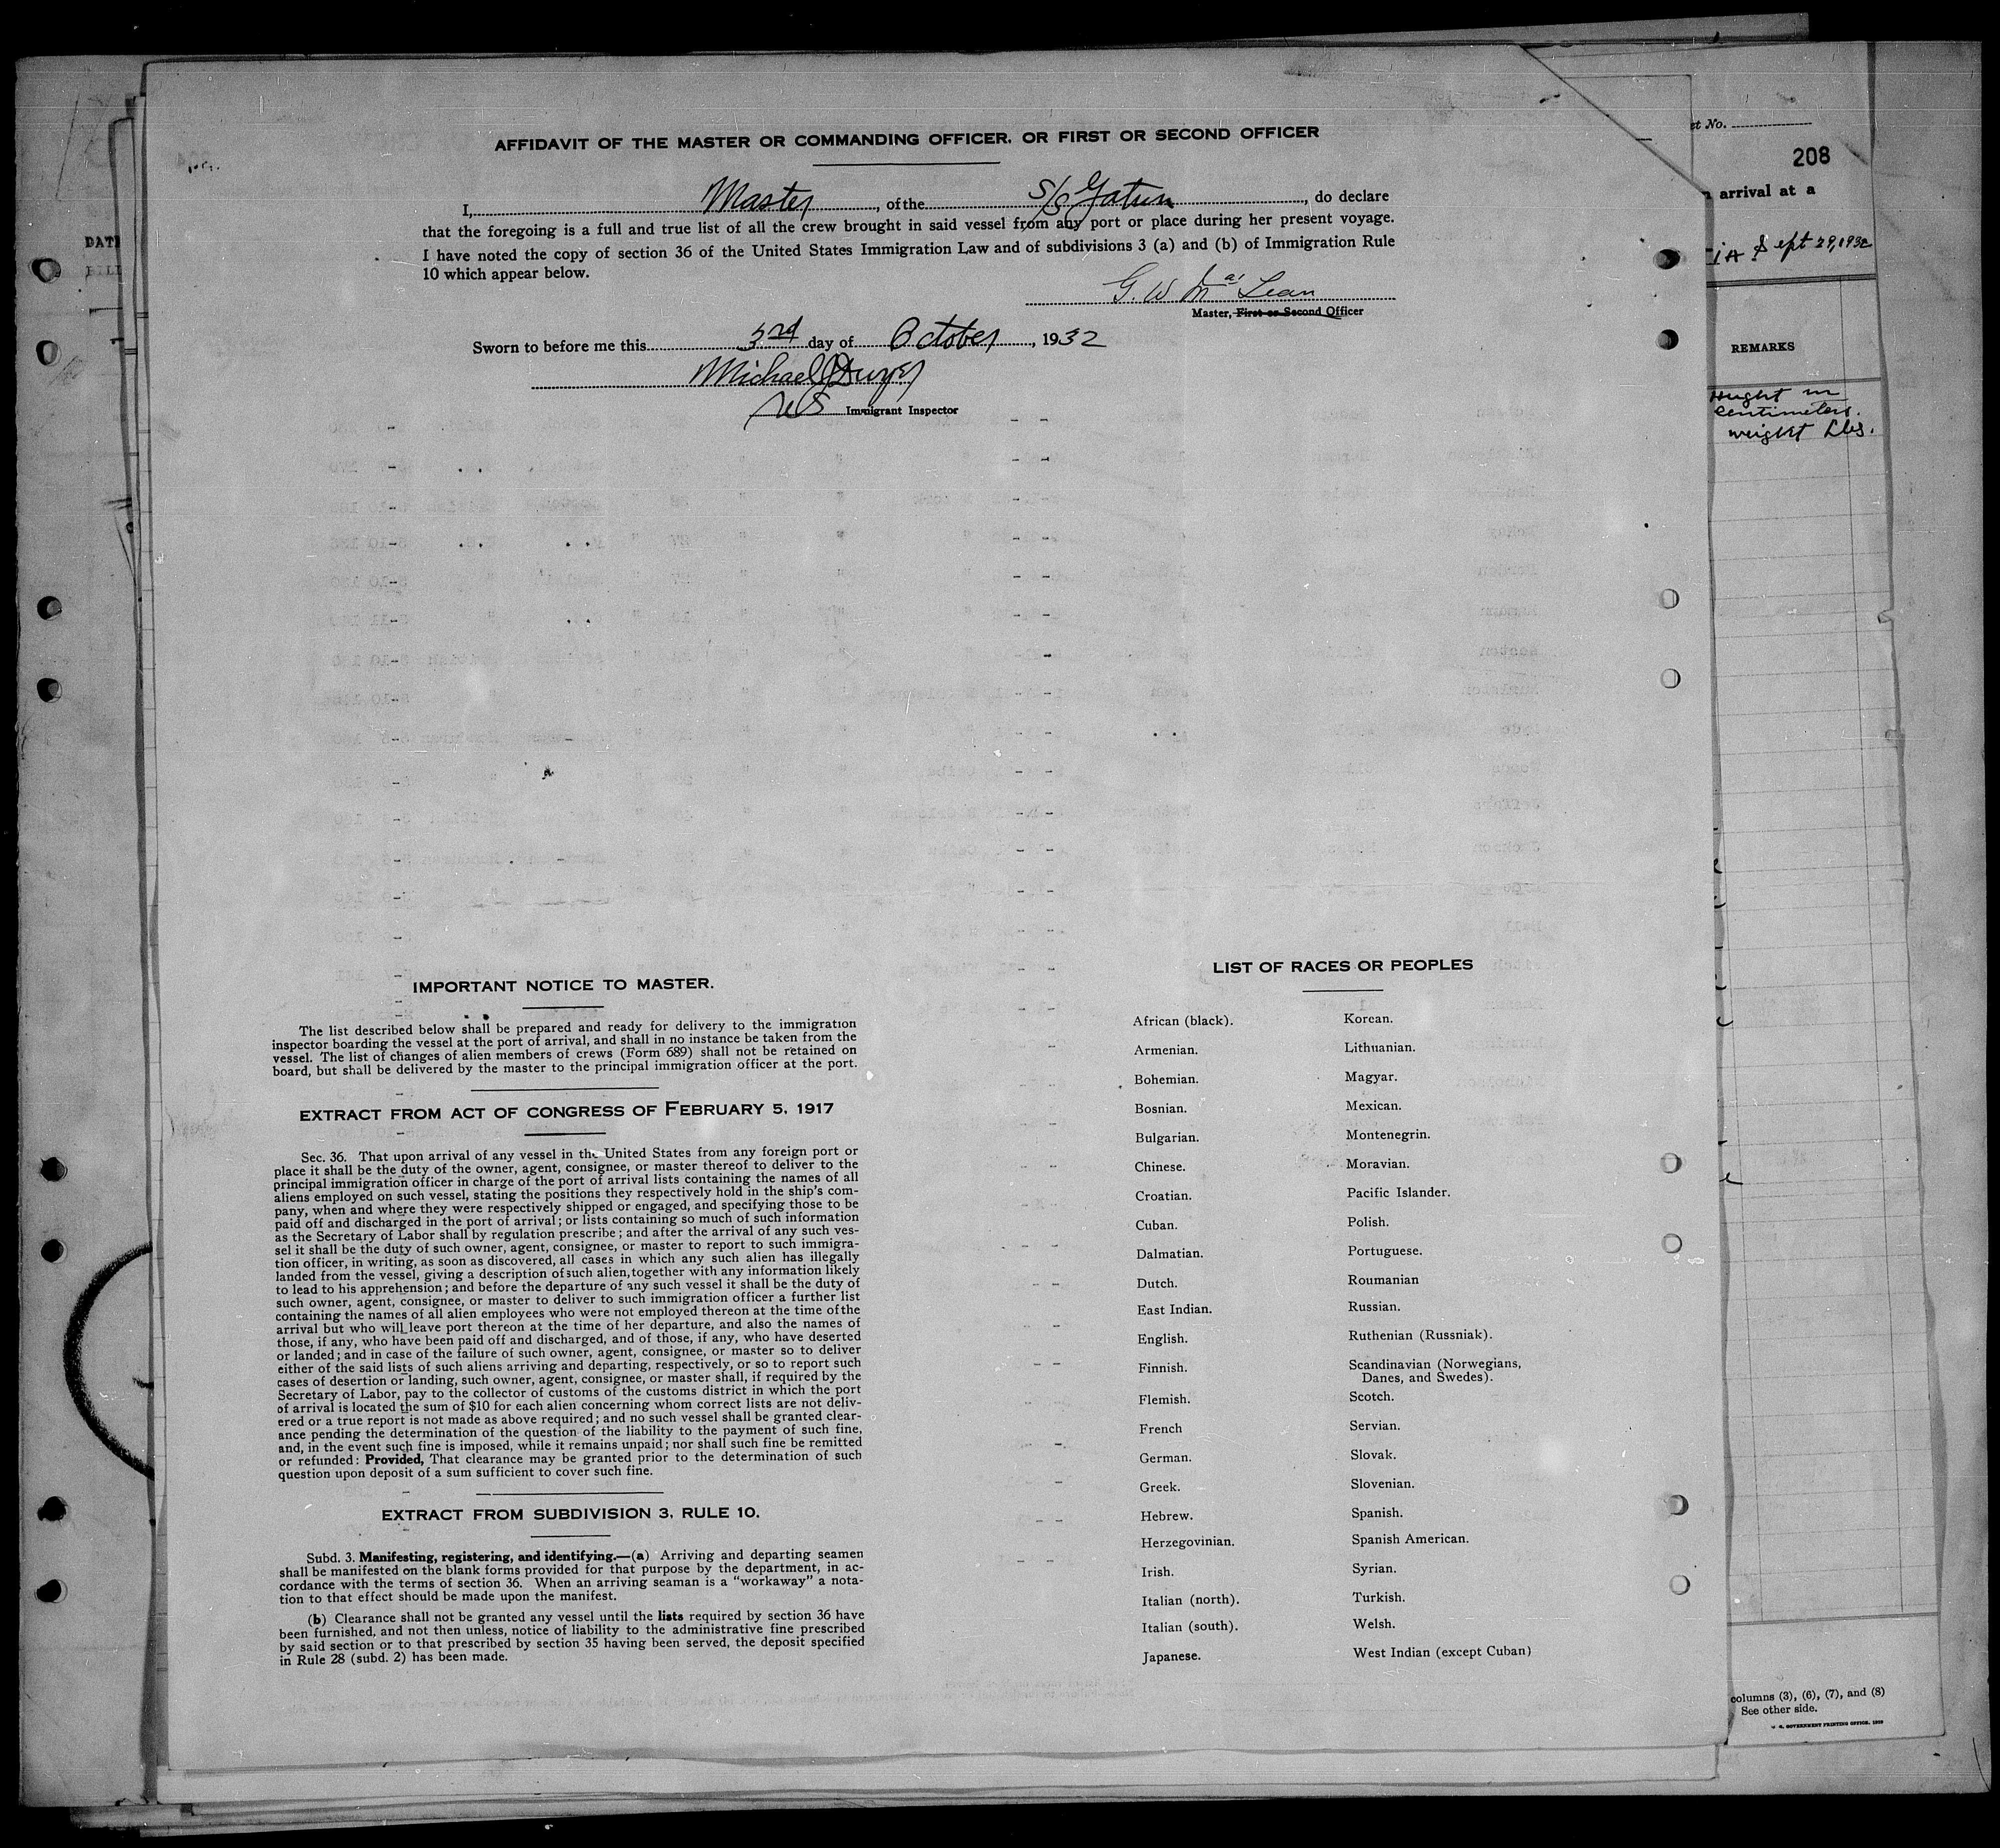 AFFIDAVIT OF THE MASTER OR COMMANDING OFFICER, OR FIRST OR SECOND OFFICER
I, Master, of the S/S Gatun, do declare
that the foregoing is a full and true list of all the crew brought in said vessel from any port or place during her present voyage.
I have noted the copy of section 36 of the United States Immigration Law and of subdivisions 3 (a) and (b) of Immigration Rule
10 which appear below.
G. W. MacLean
Master, First or Second Officer
Sworn to before me this 3rd day of October, 1932
Michael Dwyer
US Immigrant Inspector
IMPORTANT NOTICE TO MASTER.
The list described below shall be prepared and ready for delivery to the immigration
inspector boarding the vessel at the port of arrival, and shall in no instance be taken from the
vessel. The list of changes of alien members of crews (Form 689) shall not be retained on
board, but shall be delivered by the master to the principal immigration officer at the port.
EXTRACT FROM ACT OF CONGRESS OF FEBRUARY 5, 1917
Sec. 36. That upon arrival of any vessel in the United States from any foreign port or
place it shall be the duty of the owner, agent, consignee, or master thereof to deliver to the
principal immigration officer in charge of the port of arrival lists containing the names of all
aliens employed on such vessel, stating the positions they respectively hold in the ship's com-
pany, when and where they were respectively shipped or engaged, and specifying those to be
paid off and discharged in the port of arrival; or lists containing so much of such information
as the Secretary of Labor shall by regulation prescribe; and after the arrival of any such ves-
sel it shall be the duty of such owner, agent, consignee, or master to report to such immigra-
tion officer, in writing, as soon as discovered, all cases in which any such alien has illegally
landed from the vessel, giving a description of such alien, together with any information likely
to lead to his apprehension; and before the departure of any such vessel it shall be the duty of
such owner, agent, consignee, or master to deliver to such immigration officer a further list
containing the names of all alien employees who were not employed thereon at the time of the
arrival but who will leave port thereon at the time of her departure, and also the names of
those, if any, who have been paid off and discharged, and of those, if any, who have deserted
or landed; and in case of the failure of such owner, agent, consignee, or master so to deliver
either of the said lists of such aliens arriving and departing, respectively, or so to report such
cases of desertion or landing, such owner, agent, consignee, or master shall, if required by the
Secretary of Labor, pay to the collector of customs of the customs district in which the port
of arrival is located the sum of $10 for each alien concerning whom correct lists are not deliv-
ered or a true report is not made as above required; and no such vessel shall be granted clear-
ance pending the determination of the question of the liability to the payment of such fine,
and, in the event such fine is imposed, while it remains unpaid; nor shall such fine be remitted
or refunded: Provided, That clearance may be granted prior to the determination of such
question upon deposit of a sum sufficient to cover such fine.
EXTRACT FROM SUBDIVISION 3, RULE 10.
Subd. 3. Manifesting, registering, and identifying.—(a) Arriving and departing seamen
shall be manifested on the blank forms provided for that purpose by the department, in ac-
cordance with the terms of section 36. When an arriving seaman is a "workaway" a nota-
tion to that effect should be made upon the manifest.
(b) Clearance shall not be granted any vessel until the lists required by section 36 have
been furnished, and not then unless, notice of liability to the administrative fine prescribed
by said section or to that prescribed by section 35 having been served, the deposit specified
in Rule 28 (subd. 2) has been made.
LIST OF RACES OR PEOPLES
African (black). Korean.
Armenian. Lithuanian.
Bohemian. Magyar.
Bosnian. Mexican.
Bulgarian. Montenegrin.
Chinese. Moravian.
Croatian. Pacific Islander.
Cuban. Polish.
Dalmatian. Portuguese.
Dutch. Roumanian
East Indian. Russian.
English. Ruthenian (Russniak).
Finnish. Scandinavian (Norwegians,
Danes, and Swedes).
Flemish. Scotch.
French Servian.
German. Slovak.
Greek. Slovenian.
Hebrew. Spanish.
Herzegovinian. Spanish American.
Irish. Syrian.
Italian (north). Turkish.
Italian (south). Welsh.
Japanese. West Indian (except Cuban)
et No.
208
arrival at a
Sept 29, 1932
REMARKS
Height in
Centimeters.
weight Lbs.
columns (3), (6), (7), and (8)
See other side.
GOVERNMENT PRINTING OFFICE